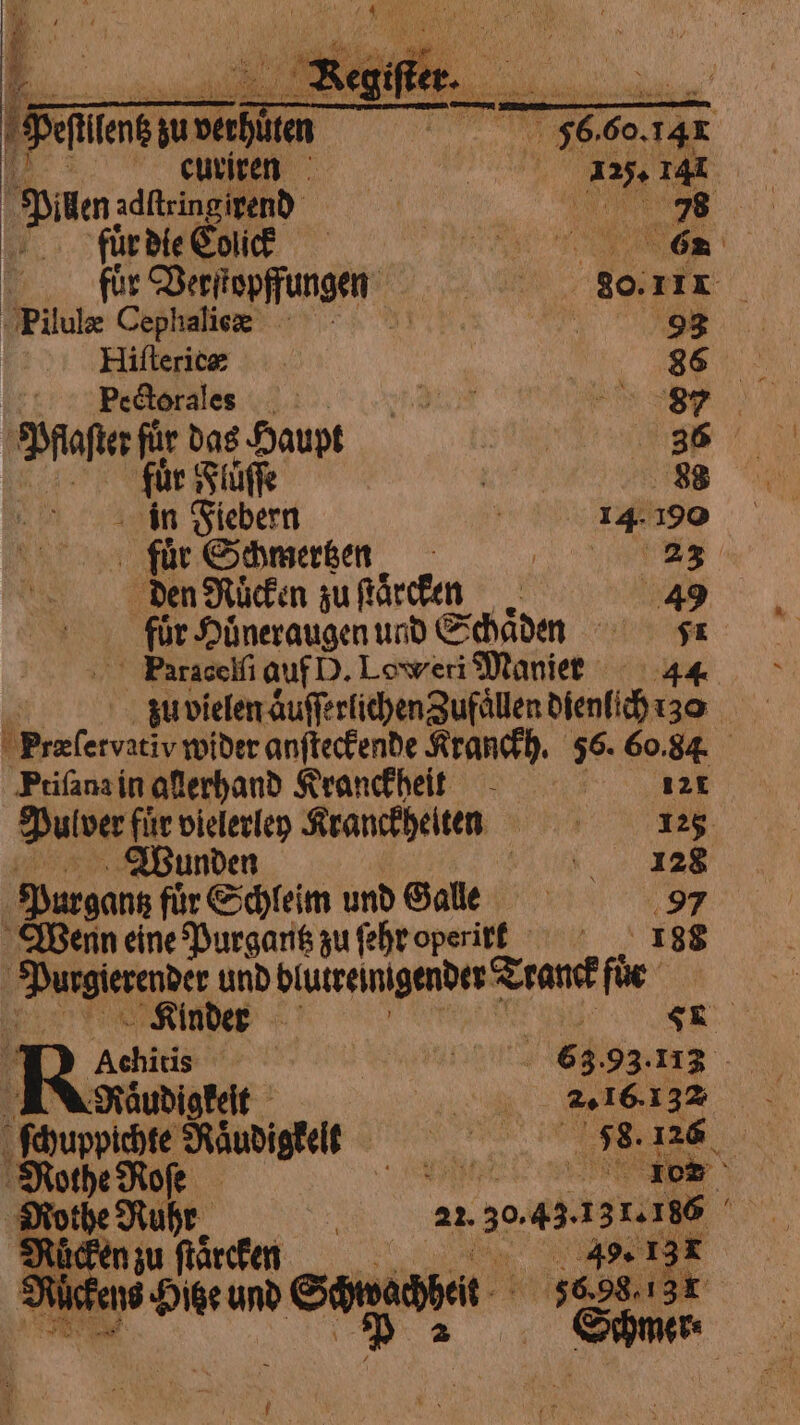 Regiſter.
Peſtilentz zu verhuͤten 56.60.141
curiren 125. 141
Pillen adſtringirend 78
fuͤr die Colick 62
fuͤr Verſtopffungen 80.111
Pilulæ Cephalicæ 93
Hiſtericæ 86
Pectorales 87
Pflaſter fuͤr das Haupt 36
fuͤr Fluͤſſe 88
in Fiebern 14.190
fuͤr Schmertzen 23
den Ruͤcken zu ſtaͤrcken 49
fuͤr Huͤneraugen und Schaͤden 51
Paracelſi auf D. Loweri Manier 44
zu vielen aͤuſſerlichen Zufaͤllen dienlich 130
Præſervativ wider anſteckende Kranckh. 56. 60.84
Ptiſana in allerhand Kranckheit 121
Pulver fuͤr vielerley Kranckheiten 125
Wunden 128
Purgantz fuͤr Schleim und Galle 97
Wenn eine Purgantz zu ſehr operirt 188
Purgierender und blutreinigender Tranck fuͤr
Kinder 51
RAchitis 63.93.113
Raͤudigkeit 2.16.132
ſchuppichte Raͤudigkeit 58. 126
Rothe Roſe 102
Rothe Ruhr 22. 30.43.131.186
Ruͤcken zu ſtaͤrcken 49. 131
Ruͤckens Hitze und Schwachheit 56.98.131
P 2 Schmer-